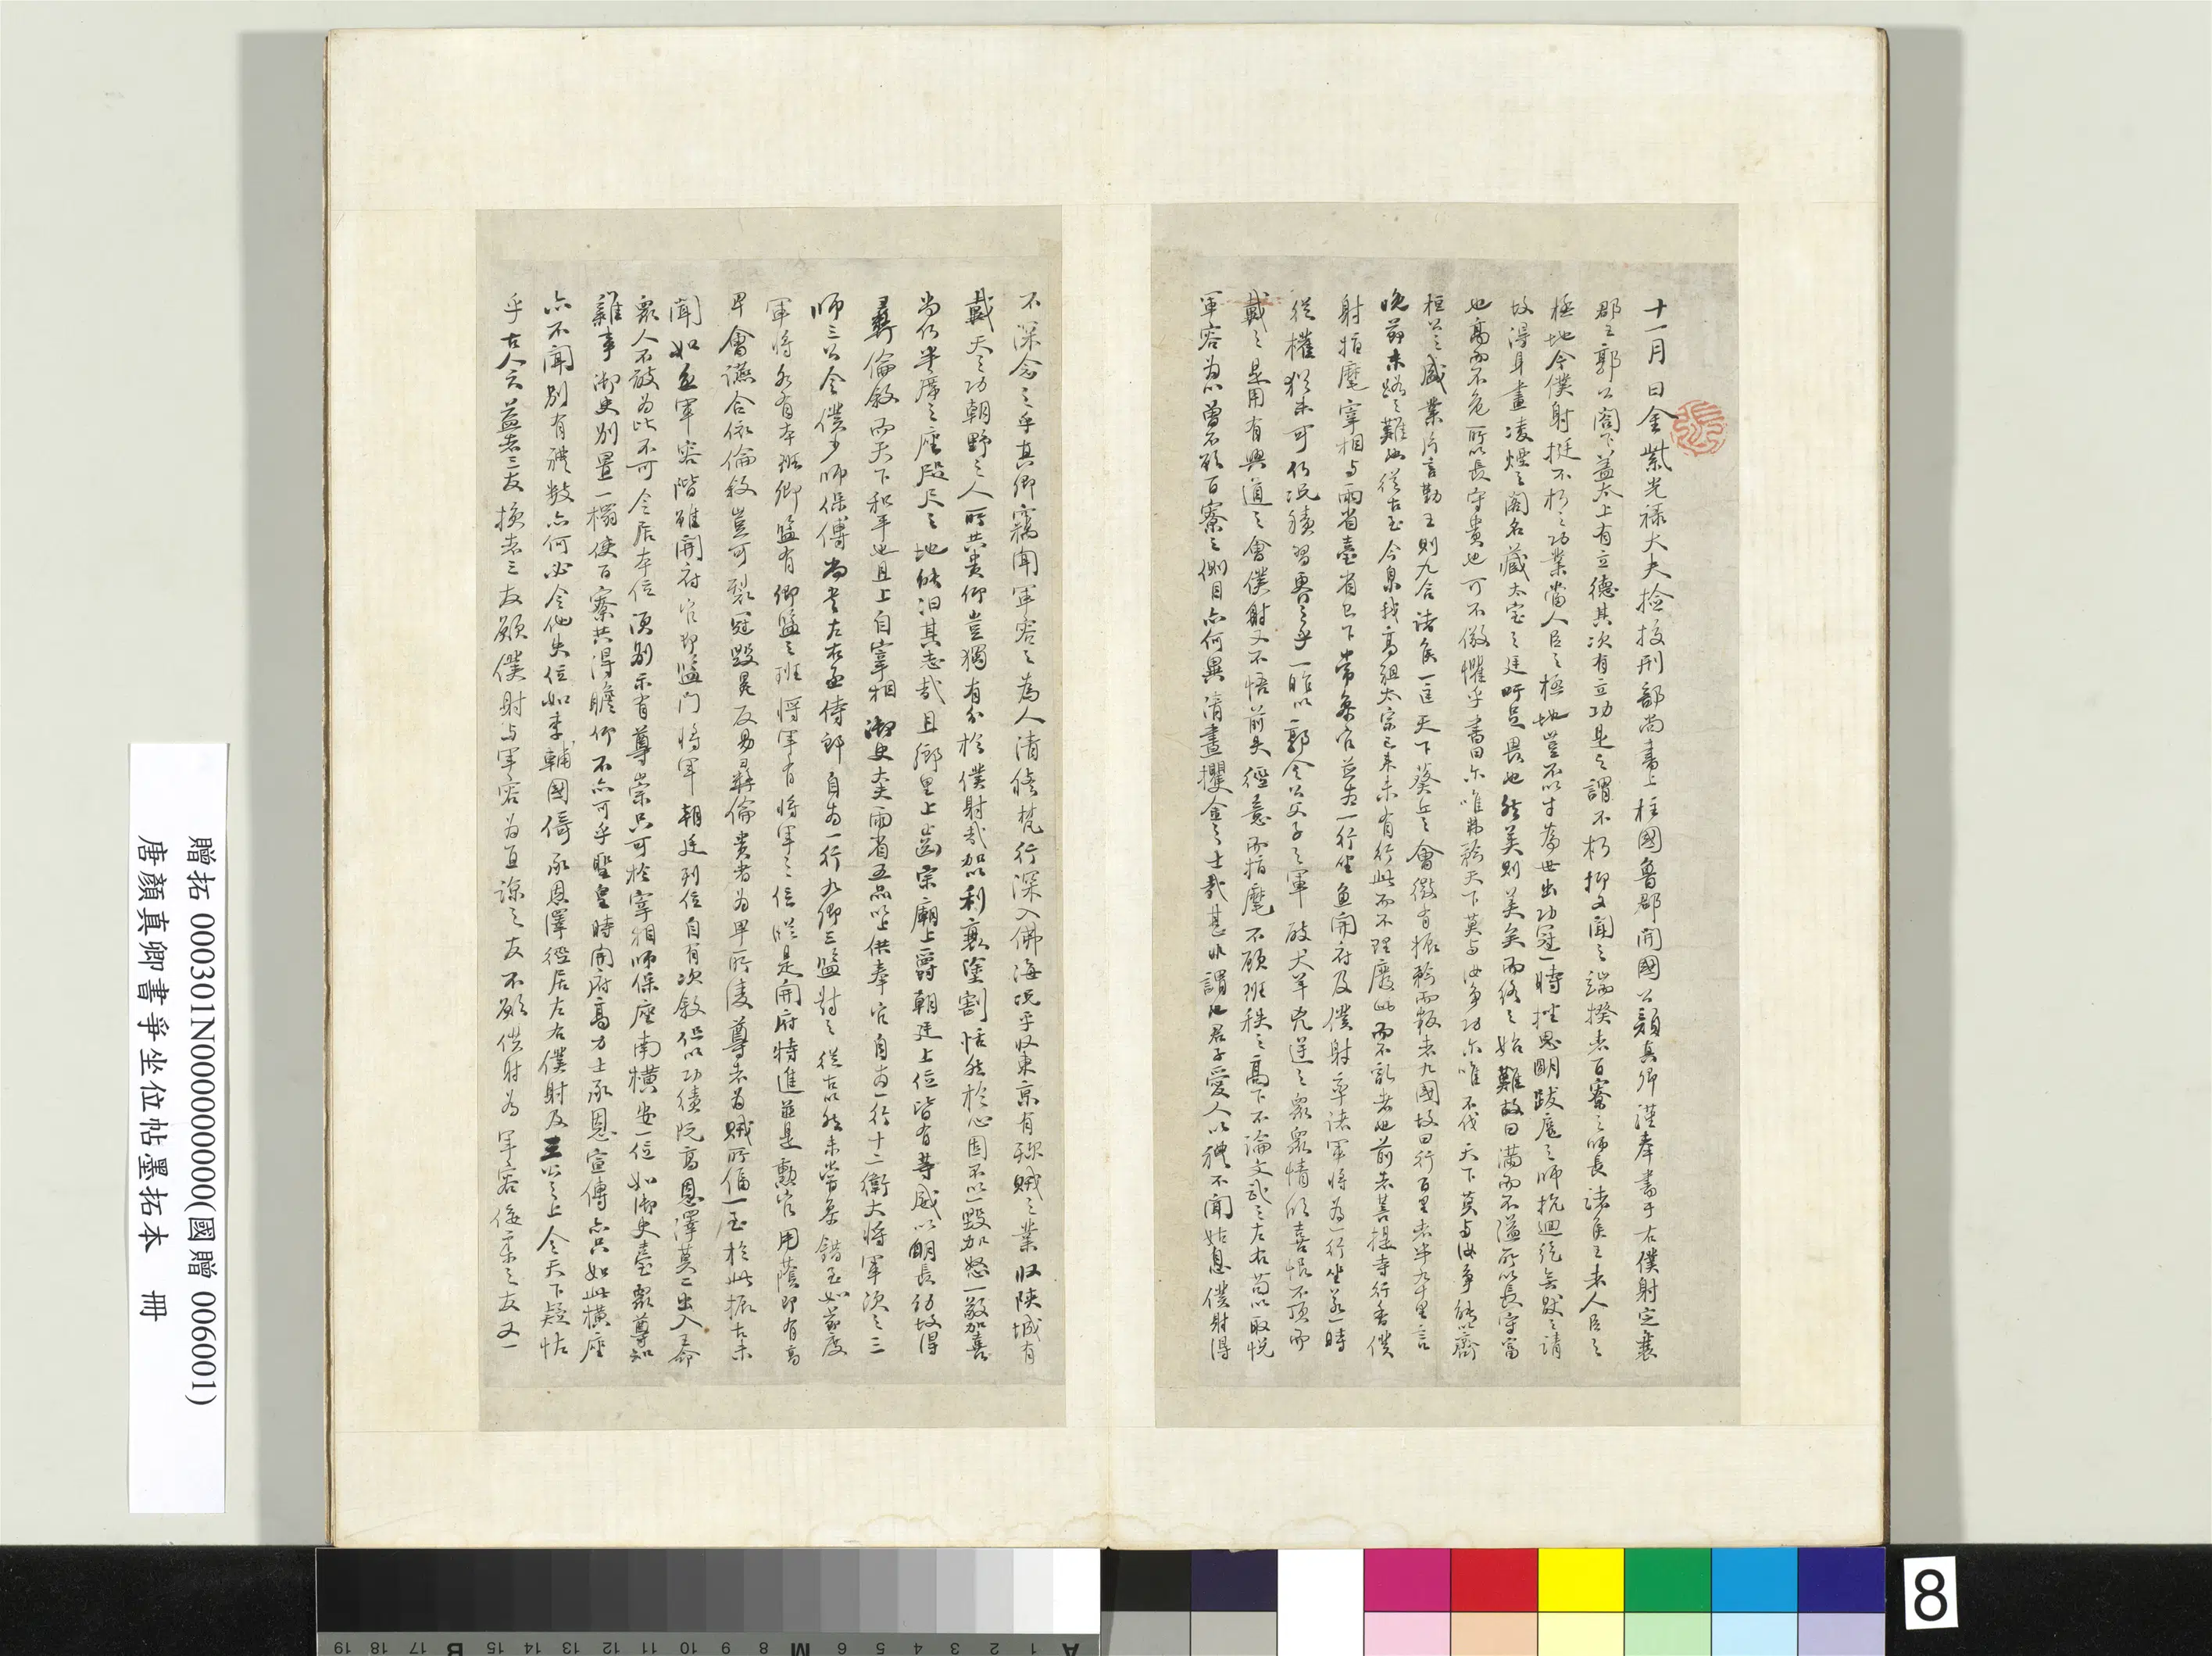 十一月 日金紫光祿大夫撿挍刑部尚書上柱國魯郡開國公顏真卿謹奉書于右僕射定襄
郡王郭公閣下蓋太上有立德其次有立功是之謂不朽抑又聞之端揆者百寮之師長諸侯王者人臣之
極地今僕射挺不朽之功業當人臣之極地豈不以才為世出功冠一時挫思明跋扈之師抗迴紇無猒之請
故得身畫凌煙之閣名藏太室之廷吁足畏也然美則美矣而終之始難故曰滿而不溢所以長守富
也高而不危所以長守貴也可不儆懼乎書曰尒唯弗矜天下莫与汝爭功尒唯不伐天下莫与汝爭能以齊
桓公之盛業片言勤王則九合諸侯一匡天下葵丘之會微有振矜而叛者九國故曰行百里者半九十里言
晚節末路之難也從古至今泉我高祖太宗已來未有行此而不理廢此而不亂者也前者菩提寺行香僕
射指麾宰相与兩省臺省已下常參官並為一行坐魚開府及僕射率諸軍將為一行坐若一時
從權猶未可何況積習更行之乎一昨以郭令公父子之軍破犬羊兇逆之眾眾情欣喜恨不頂而
戴之是用有興道之會僕射又不悟前失徑意而指麾不顧班秩之高下不論文武之左右苟以取悅
軍容為心曾不顧百寮之側目亦何異清晝攫金之士哉甚非謂也君子愛人以禮不聞姑息僕射得
不深念之乎真卿竊聞軍容之為人清修梵行深入佛海況乎收東京有殄賊之業收陝城有
戴天之功朝野之人所共貴仰豈獨有分於僕射哉加以利衰塗割恬然於心固不以一毀加怒一敬加喜
尚何半席之座咫尺之地能汩其志哉且鄉里上齒宗廟上爵朝廷上位皆有等威以明長幼故得
彝倫敘而天下和平也且上自宰相御史大夫兩省五品以上供奉官自為一行十二衛大將軍次之三
師三公令僕少師保傅尚書左右丞侍郎自為一行九卿三監對之從古以然未嘗參錯至如節度
軍將各有本班卿監有卿監之班將軍有將軍之位縱是開府特進並是勳官用蔭即有高
卑會讌合依倫敘豈可裂冠毀冕反易彝倫貴者為卑所凌尊者為賊所偪一至於此振古未
聞如魚軍容階雖開府官即監門將軍朝廷列位自有次敘但以功績既高恩澤莫二出入王命
眾人不敢為比不可令居本位須別示有尊崇只可於宰相師保座南橫安一位如御史臺眾尊知
雜事御史別置一榻使百寮共得瞻仰不亦可乎聖皇時開府高力士承恩宣傳亦只如此橫座
亦不聞別有禮數亦何必令他失位如李輔國倚承恩澤徑居左右僕射及王公之上令天下疑怪
乎古人云益者三友損者三友願僕射与軍容為直諒之友不願僕射為軍容佞柔之友又一
贈拓 000301N000000000(國贈 006001)
唐顏真卿書爭坐位帖墨拓本 冊
8
A 1 2 3 4 5 6 M 8 9 10 11 12 13 14 15 B 17 18 19